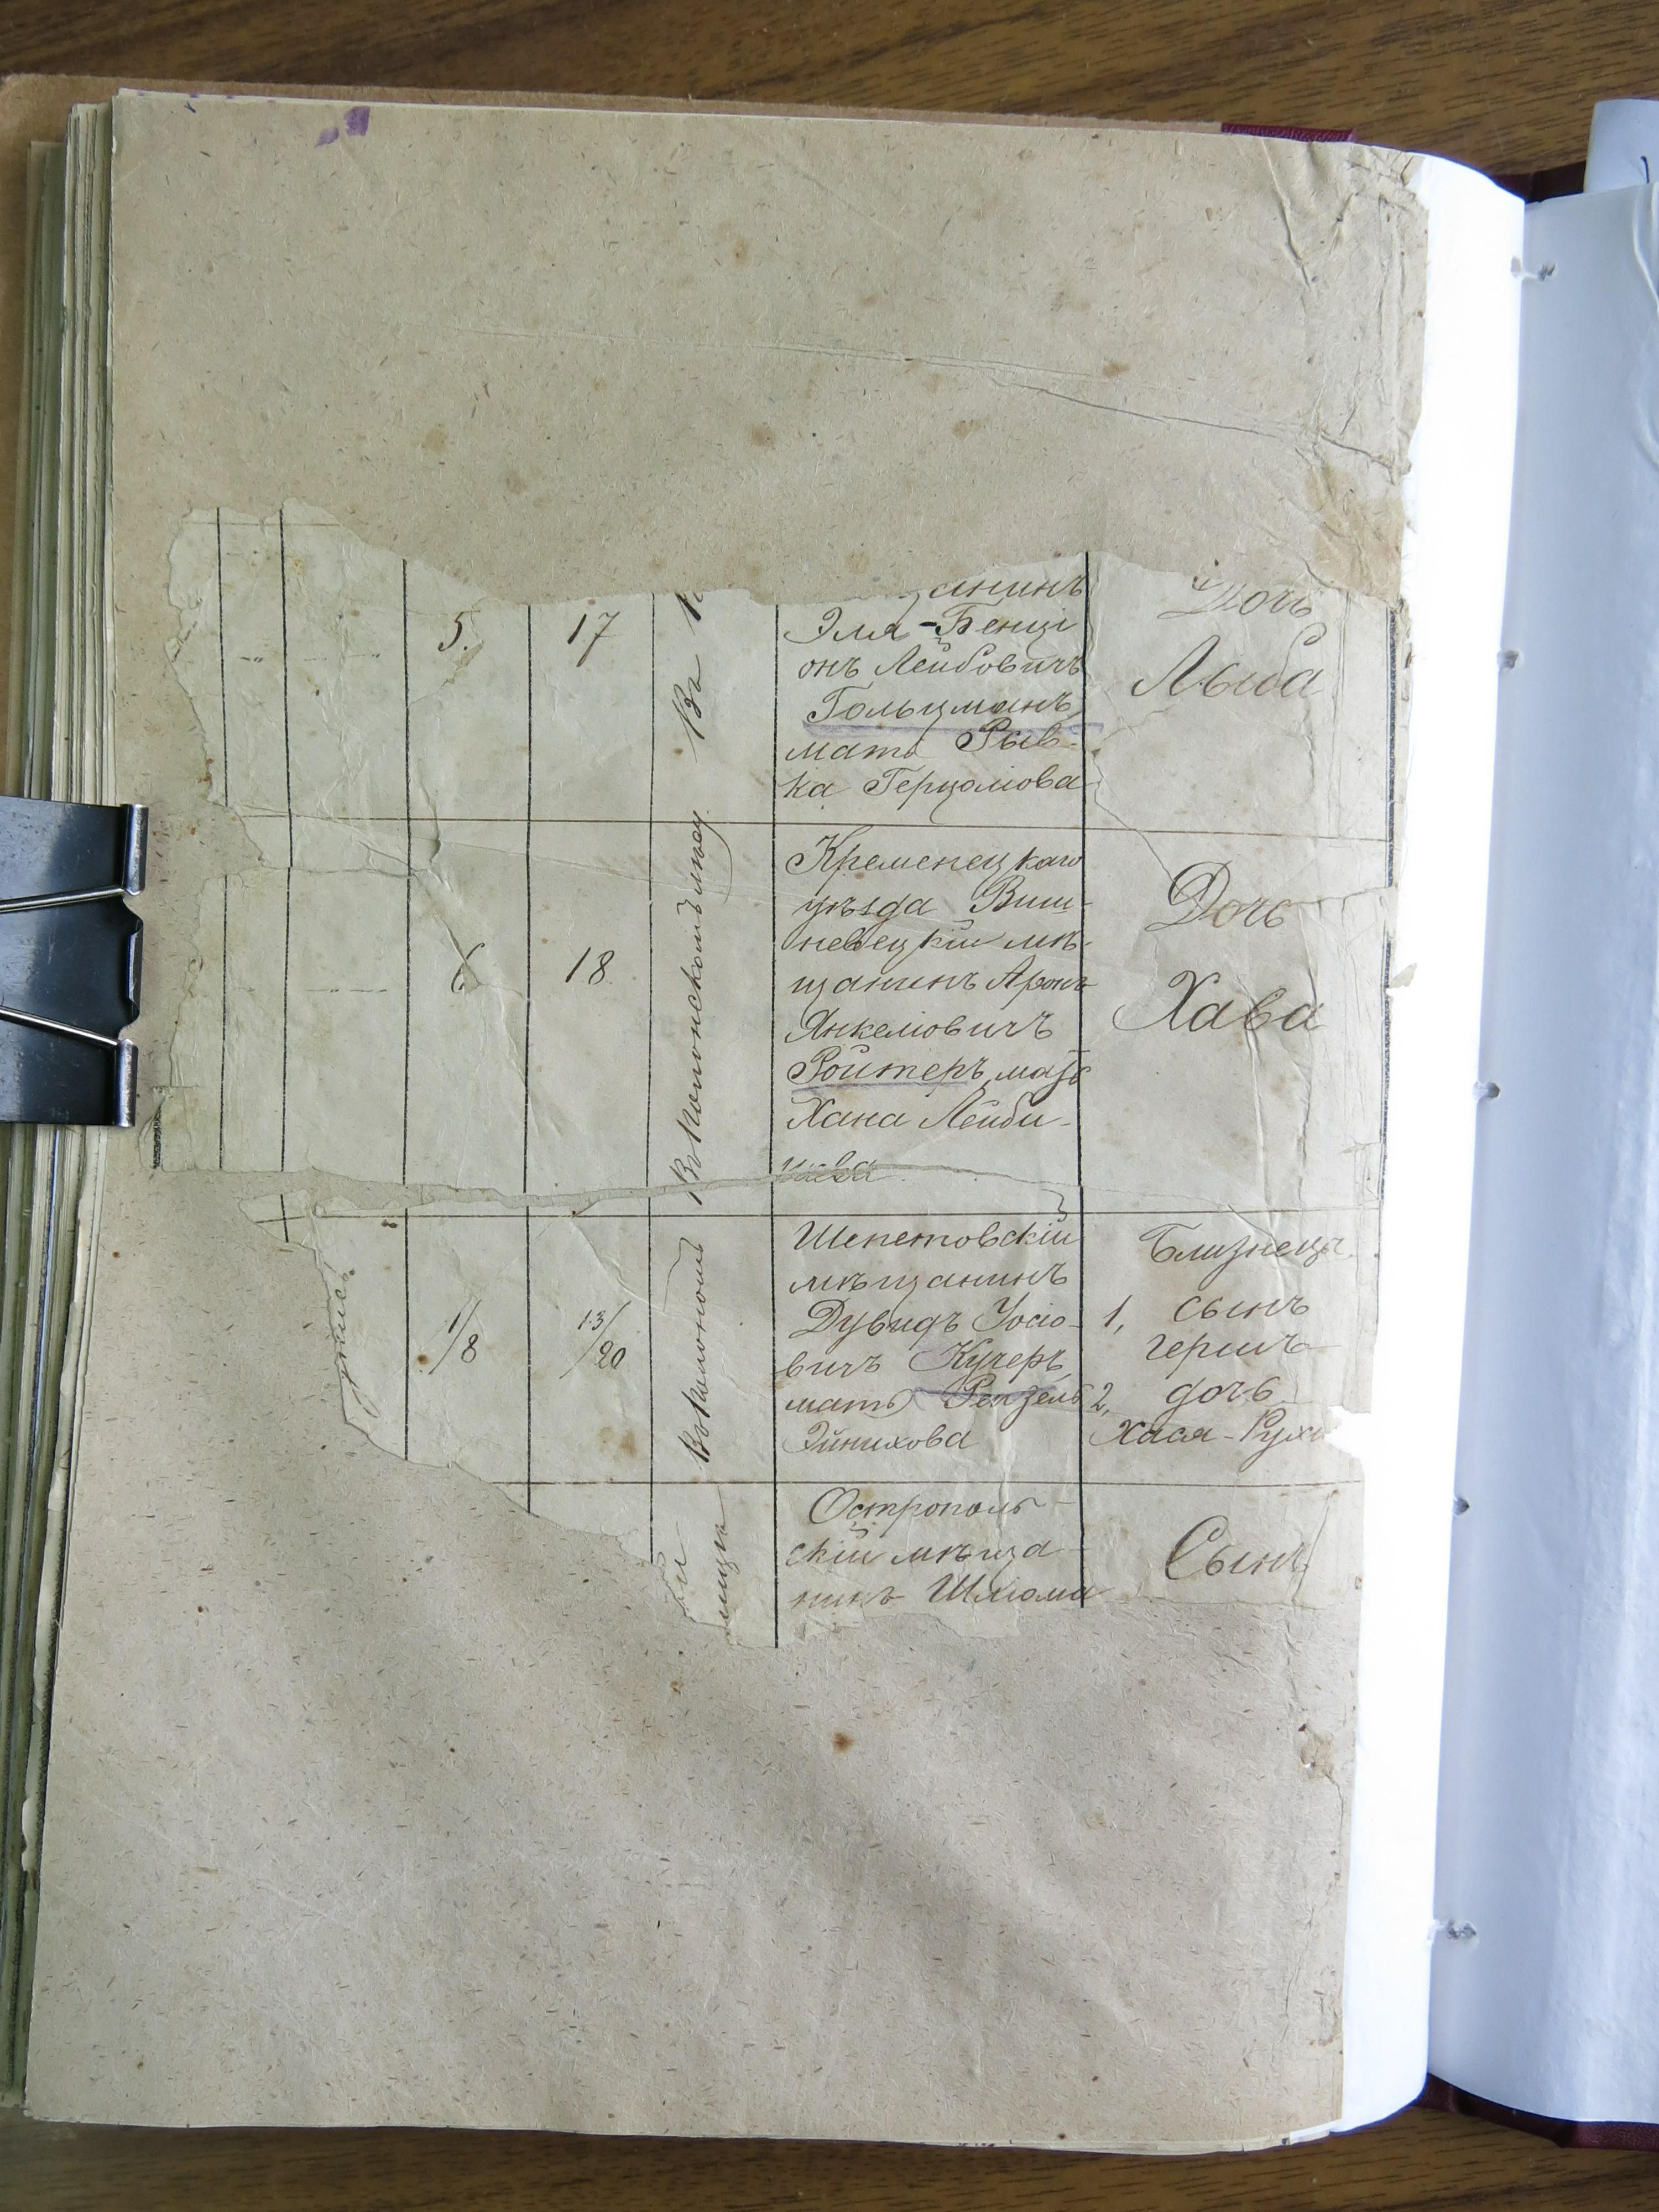 5.
17
Въ
анинъ
Эля-Бенці
онъ Лейбовичъ
Гольцманъ,
мать Рыв-
ка Герцолiова
Дочь
Лыба
6
18
Кременецкаго
уѣзда Виш-
невецкій мѣ-
щанинъ Аронъ
Янкеліовичъ
Ройтеръ, мать
Хана Лейби-
Дочь
Хава
1/8
13/20
Шепетовскій
мѣщанинъ
Дувидъ Іосіо-
вичъ Кучеръ,
мать Рейзель
Эйнихова
Близнецы
1, сынъ
Гершъ
2, дочь
Хася-Рухл
Острополь-
скій мѣща-
нинъ Шліома
Сынъ